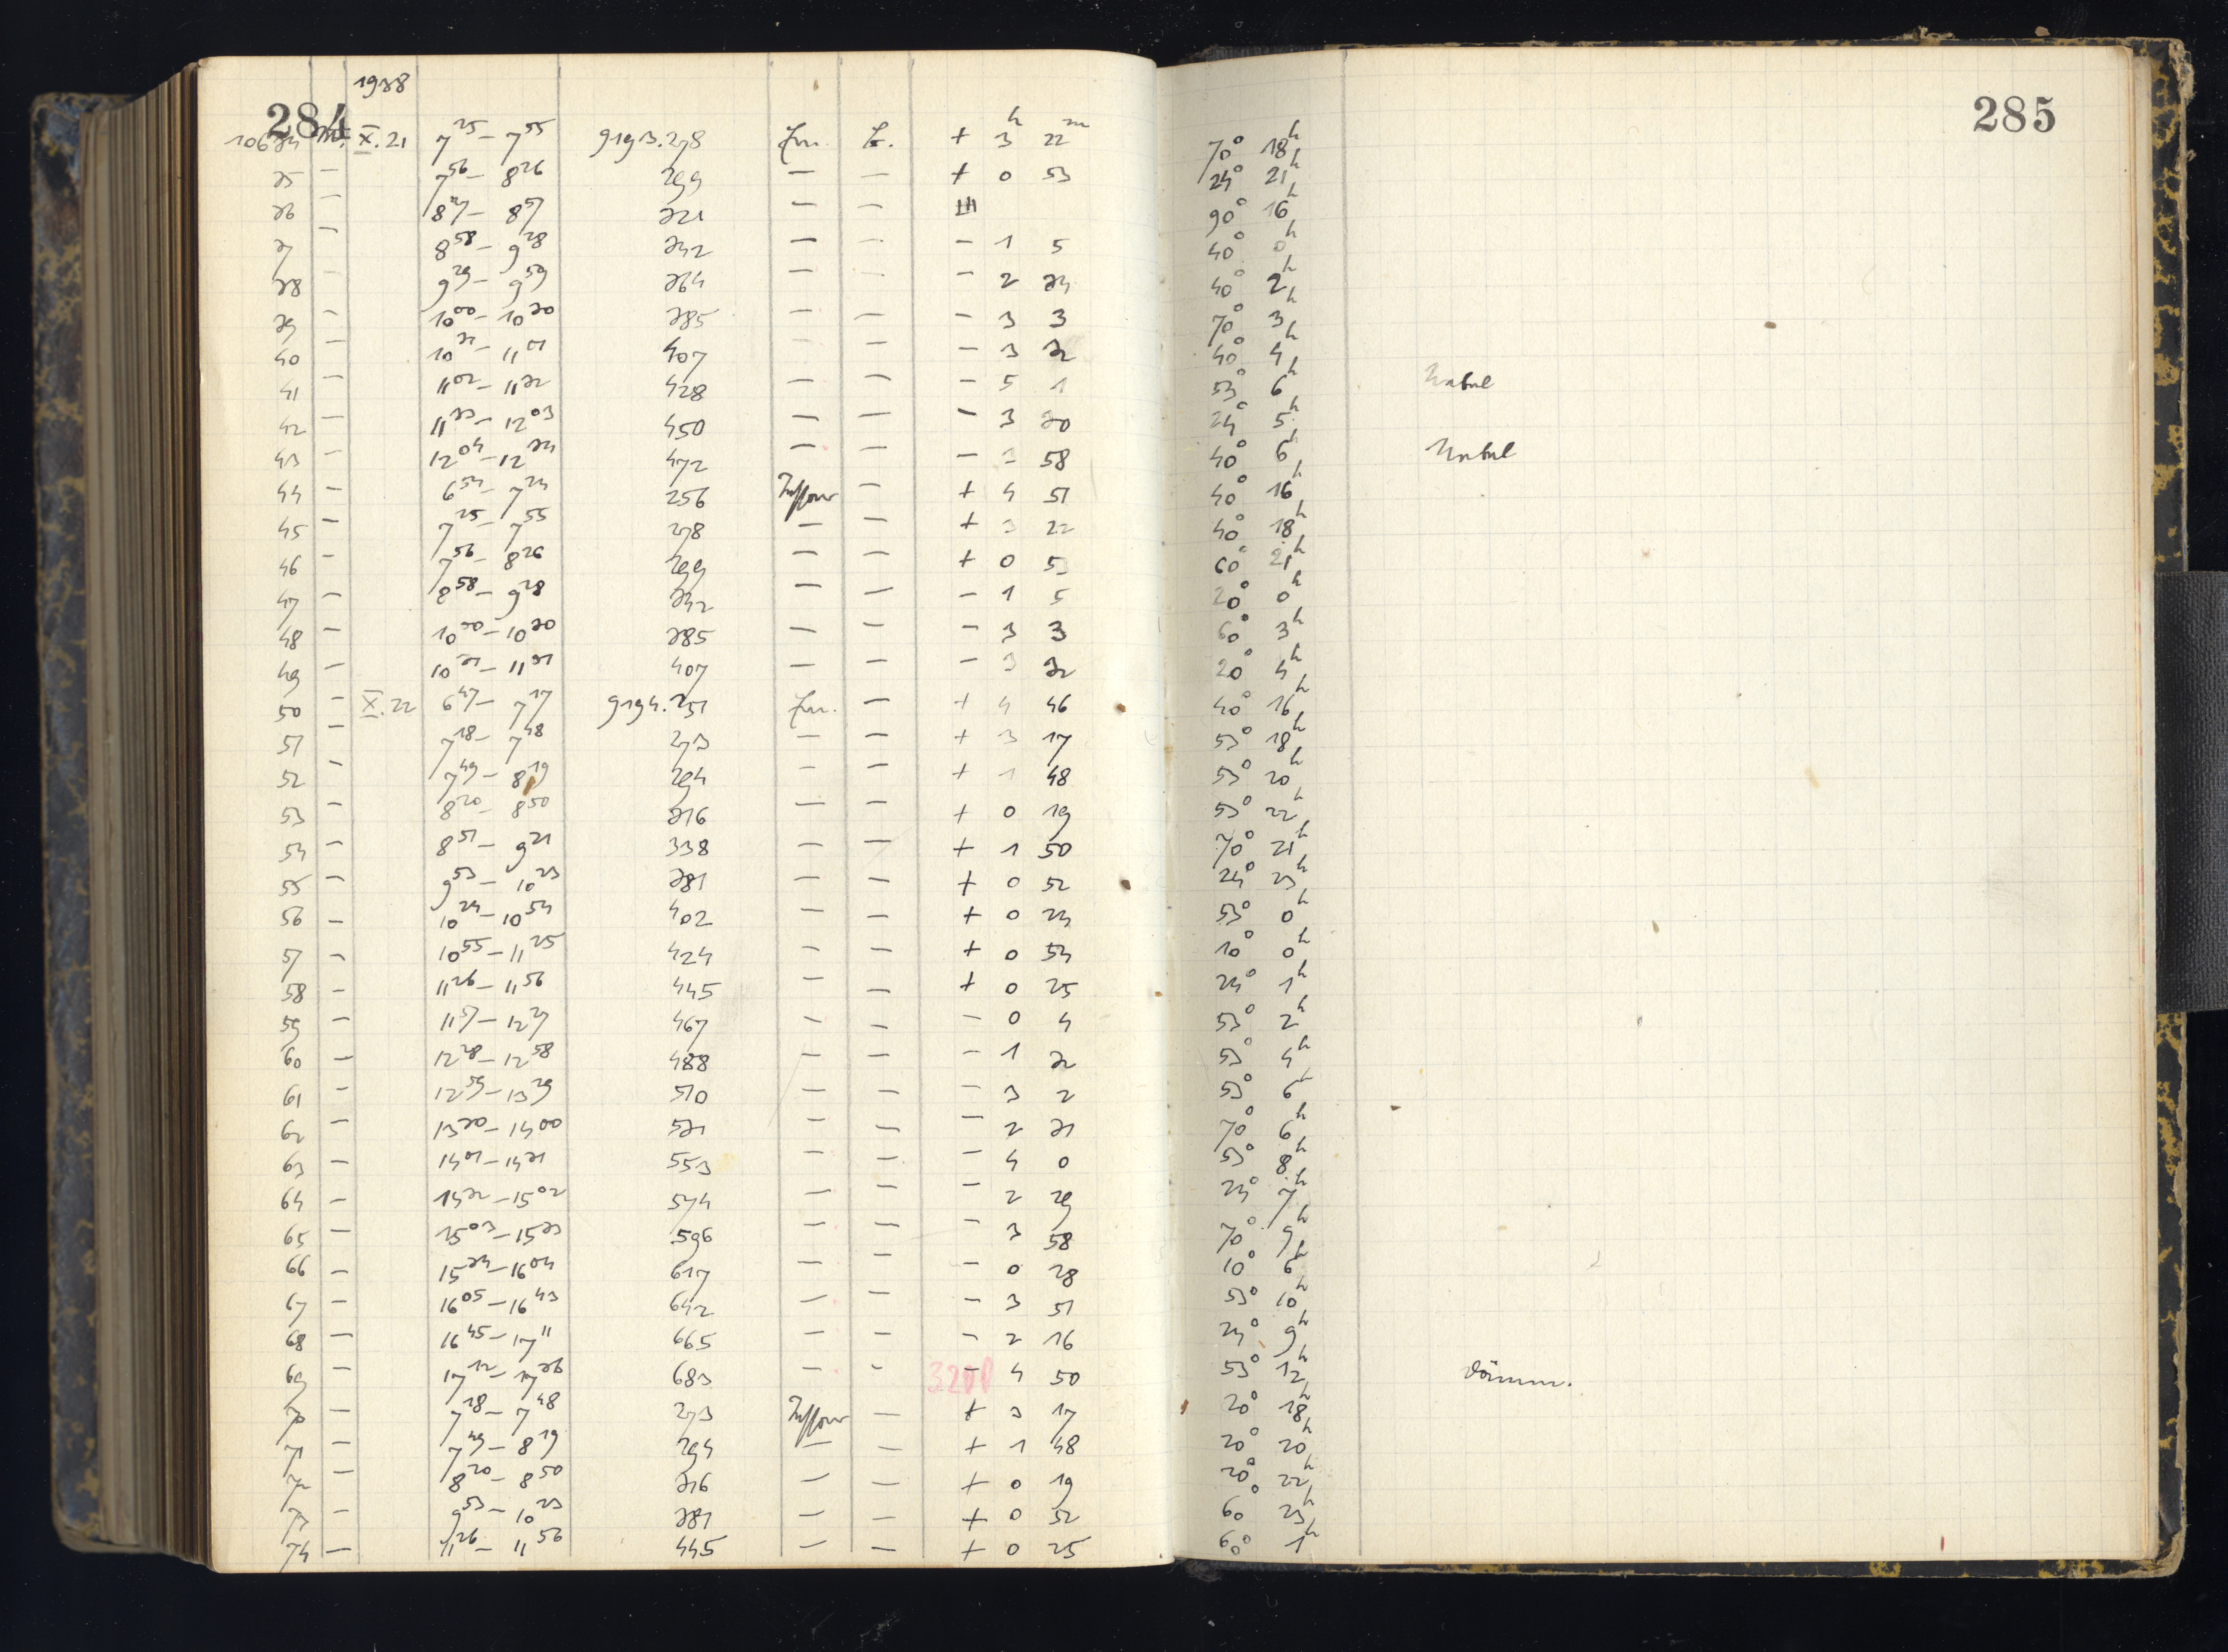 284
285
1938
10634 X.21 7 25 – 7 55 9193.278 Ern. + 3 h 22 m 70° 18 h
35 — 7 56 – 8 26 299 — — + 0 53 24° 21 h
36 — 8 27 – 8 57 321 — — 90° 16 h
37 — 8 58 – 9 28 342 — — – 1 5 40° 0 h
38 — 9 29 – 9 59 364 — — – 2 34 40° 2 h
39 — 10 00 – 10 30 385 — — – 3 3 70° 3 h
40 — 10 31 – 11 01 407 — — – 3 32 40° 4 h
41 — 11 02 – 11 32 428 — — – 5 1 53° 6 h Nebel
42 — 11 33 – 12 03 450 — — – 3 30 24° 5 h
43 — 12 04 – 12 34 472 — — – 3 58 40° 6 h Nebel
44 — 6 54 – 7 24 256 — + 4 51 40° 16 h
45 — 7 25 – 7 55 278 — — + 3 22 40° 18 h
46 — 7 56 – 8 26 299 — — + 0 53 60° 21 h
47 — 8 58 – 9 28 342 — — – 1 5 20° 0 h
48 — 10 00 – 10 30 385 — — – 3 3 60° 3 h
49 — 10 31 – 11 01 407 — — – 3 32 20° 4 h
50 — X.22 6 47 – 7 17 9194.251 Ern. — + 4 46 40° 16 h
51 — 7 18 – 7 48 273 — — + 3 17 53° 18 h
52 — 7 49 – 8 19 294 — — + 1 48 53° 20 h
53 — 8 20 – 8 50 316 — — + 0 19 53° 22 h
54 — 8 51 – 9 21 338 — — + 1 50 70° 21 h
55 — 9 53 – 10 23 381 — — + 0 52 24° 23 h
56 — 10 24 – 10 54 402 — — + 0 24 53° 0 h
57 — 10 55 – 11 25 424 — — + 0 54 10° 0 h
58 — 11 26 – 11 56 445 — — + 0 25 24° 1 h
59 — 11 57 – 12 27 467 — — – 0 4 53° 2 h
60 — 12 28 – 12 58 488 — — – 1 32 53° 4 h
61 — 12 59 – 13 29 510 — — – 3 2 53° 6 h
62 — 13 30 – 14 00 531 — — – 2 31 70° 6 h
63 — 14 01 – 14 31 553 — — – 4 0 53° 8 h
64 — 14 32 – 15 02 574 — — – 2 29 24° 7 h
65 — 15 03 – 15 33 596 — — – 3 58 70° 9 h
66 — 15 34 – 16 04 617 — — – 0 28 10° 6 h
67 — 16 05 – 16 43 642 — — – 3 51 53° 10 h
68 — 16 45 – 17 11 665 — — – 2 16 24° 9 h
69 — 17 12 – 17 36 683 — — 3200 – 4 50 53° 12 h Dämm.
70 — 7 18 – 7 48 273 — + 3 17 20° 18 h
71 — 7 49 – 8 19 294 — — + 1 48 20° 20 h
72 — 8 20 – 8 50 316 — — + 0 19 20° 22 h
73 — 9 53 – 10 23 381 — — + 0 52 60° 23 h
74 — 11 26 – 11 56 445 — — + 0 25 60° 1 h